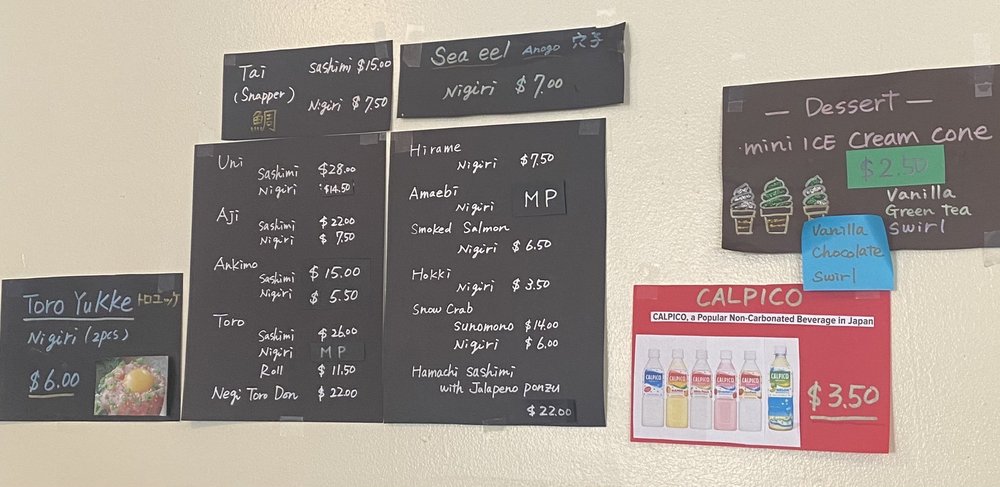 Tai Sashimi $15.00
(Snapper) Nigiri $7.50
鯛
Sea eel Anago 穴子
Nigiri $7.00
Uni
Sashimi $28.00
Nigiri $14.50
Aji
Sashimi $22.00
Nigiri $7.50
Ankimo
Sashimi $15.00
Nigiri $5.50
Toro
Sashimi $26.00
Nigiri MP
Roll $11.50
Negi Toro Don $22.00
Hirame
Nigiri $7.50
Amaebi
Nigiri MP
Smoked Salmon
Nigiri $6.50
Hokki
Nigiri $3.50
Snow Crab
Sunomono $14.00
Nigiri $6.00
Hamachi Sashimi
with Jalapeno ponzu
$22.00
Toro Yukke トロユッケ
Nigiri (2pcs)
$6.00
— Dessert —
mini ICE Cream Cone
$2.50
Vanilla
Green Tea
Swirl
Vanilla
Chocolate
Swirl
CALPICO
CALPICO, a Popular Non-Carbonated Beverage in Japan
CALPICO CALPICO CALPICO CALPICO CALPICO CALPICO
$3.50